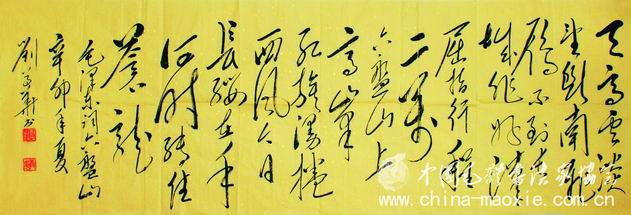 天高雲淡
望斷南飛
雁不到長
城非好漢
屈指行程
二萬
六盤山上
高峯
紅旗漫捲
西風今日
長纓在手
何時縛住
蒼龍
毛澤東詞六盤山
辛卯年夏
劉书
www.china-maoxie.com.cn